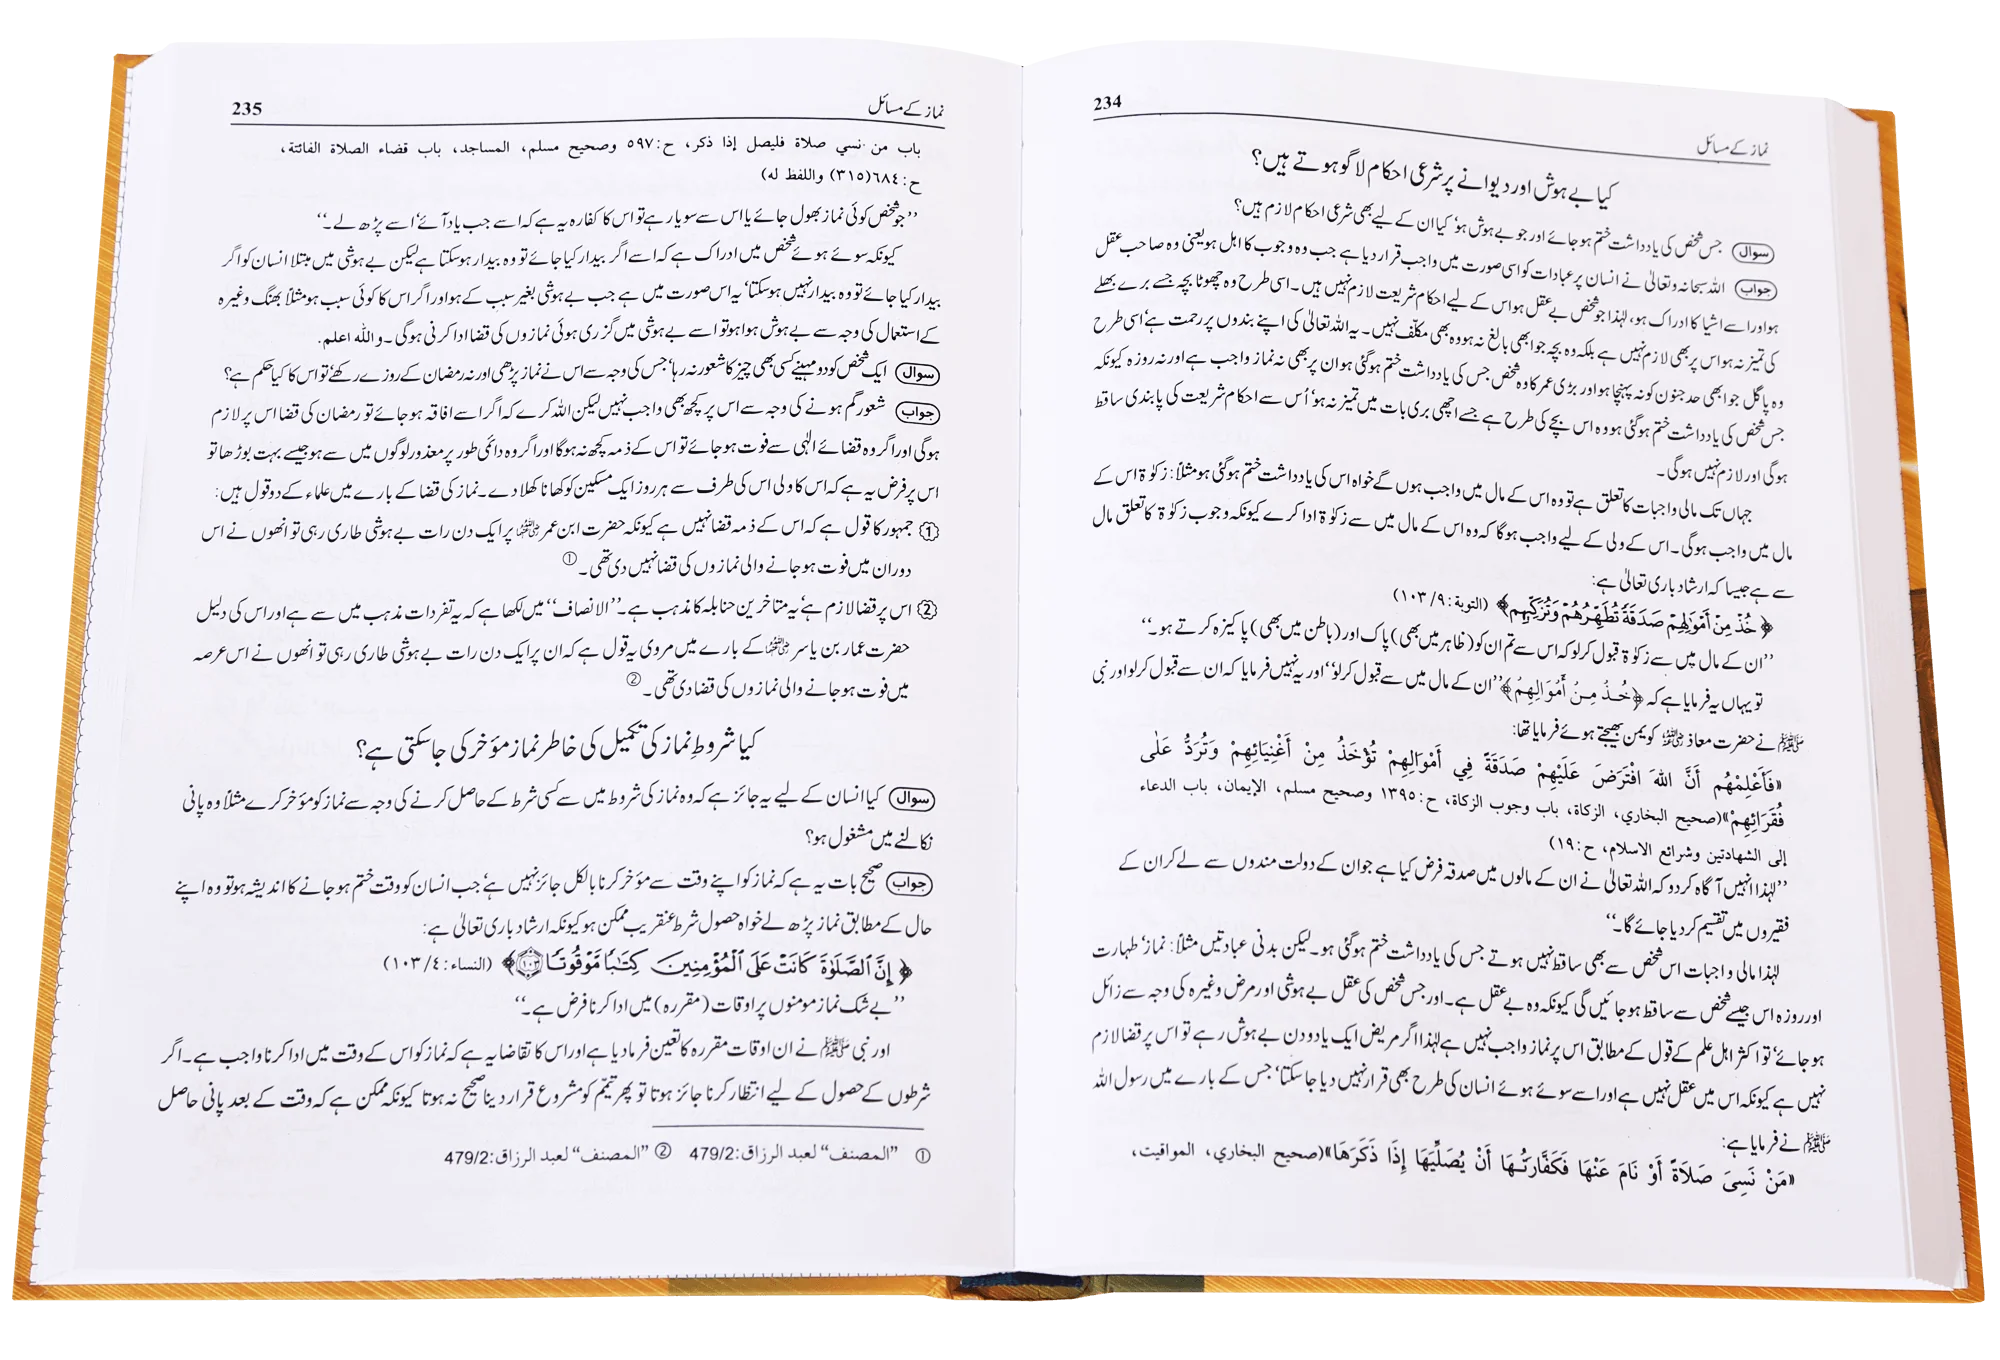 234
نماز کے مسائل
کیا بے ہوش اور دیوانے پر شرعی احکام لاگو ہوتے ہیں؟
سوال جس شخص کی یادداشت ختم ہو جائے اور جو بے ہوش ہو‘ کیا ان کے لیے بھی شرعی احکام لازم ہیں؟
جواب اللہ سبحانہ وتعالیٰ نے انسان پر عبادات کو اسی صورت میں واجب قرار دیا ہے جب وہ وجوب کا اہل ہو یعنی وہ صاحب عقل
ہو اور اسے اشیا کا ادراک ہو، لہٰذا جو شخص بے عقل ہو اس کے لیے احکام شریعت لازم نہیں ہیں۔ اسی طرح وہ چھوٹا بچہ جسے برے بھلے
کی تمیز نہ ہو اس پر بھی لازم نہیں ہے بلکہ وہ بچہ جو ابھی بالغ نہ ہو وہ بھی مکلّف نہیں۔ یہ اللہ تعالیٰ کی اپنے بندوں پر رحمت ہے‘ اسی طرح
وہ پاگل جو ابھی حد جنون کو نہ پہنچا ہو اور بڑی عمر کا وہ شخص جس کی یادداشت ختم ہو گئی ہو ان پر بھی نہ نماز واجب ہے اور نہ روزہ کیونکہ
جس شخص کی یادداشت ختم ہو گئی ہو وہ اس بچے کی طرح ہے جسے اچھی بری بات میں تمیز نہ ہو‘ اُس سے احکام شریعت کی پابندی ساقط
ہو گی اور لازم نہیں ہو گی۔
جہاں تک مالی واجبات کا تعلق ہے تو وہ اس کے مال میں واجب ہوں گے خواہ اس کی یادداشت ختم ہو گئی ہو مثلاً: زکوٰۃ اس کے
مال میں واجب ہو گی۔ اس کے ولی کے لیے واجب ہو گا کہ وہ اس کے مال میں سے زکوٰۃ ادا کرے کیونکہ وجوب زکوٰۃ کا تعلق مال
سے ہے جیسا کہ ارشاد باری تعالیٰ ہے:
﴿خُذْ مِنْ أَمْوَالِهِمْ صَدَقَةً تُطَهِّرُهُمْ وَتُزَكِّيهِم﴾ (التوبة:٩/ ١٠٣)
’’ان کے مال میں سے زکوٰۃ قبول کر لو کہ اس سے تم ان کو (ظاہر میں بھی) پاک اور (باطن میں بھی) پاکیزہ کرتے ہو۔‘‘
تو یہاں یہ فرمایا ہے کہ ﴿خُذْ مِنْ أَمْوَالِهِمْ﴾ ’’ان کے مال میں سے قبول کر لو‘‘ اور یہ نہیں فرمایا کہ ان سے قبول کر لو اور نبی
ﷺ نے حضرت معاذ رضی اللہ عنہ کو یمن بھیجتے ہوئے فرمایا تھا:
«فَأَعْلِمْهُم أَنَّ اللهَ افْتَرَضَ عَلَيْهِمْ صَدَقَةً فِي أَمْوَالِهِمْ تُؤْخَذُ مِنْ أَغْنِيَائِهِمْ وَتُرَدُّ عَلَى
فُقَرَائِهِمْ»(صحيح البخاري، الزكاة، باب وجوب الزكاة، ح:١٣٩٥ وصحيح مسلم، الإيمان، باب الدعاء
إلى الشهادتين وشرائع الاسلام، ح:١٩)
’’لہٰذا انہیں آگاہ کر دو کہ اللہ تعالیٰ نے ان کے مالوں میں صدقہ فرض کیا ہے جو ان کے دولت مندوں سے لے کر ان کے
فقیروں میں تقسیم کر دیا جائے گا۔‘‘
لہٰذا مالی واجبات اس شخص سے بھی ساقط نہیں ہوتے جس کی یادداشت ختم ہو گئی ہو۔ لیکن بدنی عبادتیں مثلاً: نماز‘ طہارت
اور روزہ اس جیسے شخص سے ساقط ہو جائیں گی کیونکہ وہ بے عقل ہے۔ اور جس شخص کی عقل بے ہوشی اور مرض وغیرہ کی وجہ سے زائل
ہو جائے‘ تو اکثر اہل علم کے قول کے مطابق اس پر نماز واجب نہیں ہے لہٰذا اگر مریض ایک یا دو دن بے ہوش رہے تو اس پر قضا لازم
نہیں ہے کیونکہ اس میں عقل نہیں ہے اور اسے سوئے ہوئے انسان کی طرح بھی قرار نہیں دیا جا سکتا‘ جس کے بارے میں رسول اللہ
ﷺ نے فرمایا ہے:
«مَنْ نَسِيَ صَلَاةً أَوْ نَامَ عَنْهَا فَكَفَّارَتُهَا أَنْ يُصَلِّيَهَا إِذَا ذَكَرَهَا»(صحيح البخاري، المواقيت،
235
نماز کے مسائل
باب من نسي صلاة فليصل إذا ذكر، ح:٥٩٧ وصحيح مسلم، المساجد، باب قضاء الصلاة الفائتة،
ح:٦٨٤(٣١٥) واللفظ له)
’’جو شخص کوئی نماز بھول جائے یا اس سے سویا رہے تو اس کا کفارہ یہ ہے کہ اسے جب یاد آئے‘ اسے پڑھ لے۔‘‘
کیونکہ سوئے ہوئے شخص میں ادراک ہے کہ اسے اگر بیدار کیا جائے تو وہ بیدار ہو سکتا ہے لیکن بے ہوشی میں مبتلا انسان کو اگر
بیدار کیا جائے تو وہ بیدار نہیں ہو سکتا‘ یہ اس صورت میں ہے جب بے ہوشی بغیر سبب کے ہو اور اگر اس کا کوئی سبب ہو مثلاً بھنگ وغیرہ
کے استعمال کی وجہ سے بے ہوش ہوا ہو تو اسے بے ہوشی میں گزری ہوئی نمازوں کی قضا ادا کرنی ہو گی۔ والله اعلم.
سوال ایک شخص کو دو مہینے کسی بھی چیز کا شعور نہ رہا‘ جس کی وجہ سے اس نے نماز پڑھی اور نہ رمضان کے روزے رکھے‘ تو اس کا کیا حکم ہے؟
جواب شعور گم ہونے کی وجہ سے اس پر کچھ بھی واجب نہیں لیکن اللہ کرے کہ اگر اسے افاقہ ہو جائے تو رمضان کی قضا اس پر لازم
ہو گی اور اگر وہ قضائے الٰہی سے فوت ہو جائے تو اس کے ذمہ کچھ نہ ہو گا اور اگر وہ دائمی طور پر معذور لوگوں میں سے ہو جیسے بہت بوڑھا تو
اس پر فرض یہ ہے کہ اس کا ولی اس کی طرف سے ہر روز ایک مسکین کو کھانا کھلا دے۔ نماز کی قضا کے بارے میں علماء کے دو قول ہیں:
① جمہور کا قول ہے کہ اس کے ذمہ قضا نہیں ہے کیونکہ حضرت ابن عمر رضی اللہ عنہما پر ایک دن رات بے ہوشی طاری رہی تو انھوں نے اس
دوران میں فوت ہو جانے والی نمازوں کی قضا نہیں دی تھی۔ ①
② اس پر قضا لازم ہے‘ یہ متاخرین حنابلہ کا مذہب ہے۔ ’’الانصاف‘‘ میں لکھا ہے کہ یہ تفردات مذہب میں سے ہے اور اس کی دلیل
حضرت عمار بن یاسر رضی اللہ عنہما کے بارے میں مروی یہ قول ہے کہ ان پر ایک دن رات بے ہوشی طاری رہی تو انھوں نے اس عرصہ
میں فوت ہو جانے والی نمازوں کی قضا دی تھی۔ ②
کیا شروطِ نماز کی تکمیل کی خاطر نماز مؤخر کی جا سکتی ہے؟
سوال کیا انسان کے لیے یہ جائز ہے کہ وہ نماز کی شروط میں سے کسی شرط کے حاصل کرنے کی وجہ سے نماز کو مؤخر کرے مثلاً وہ پانی
نکالنے میں مشغول ہو؟
جواب صحیح بات یہ ہے کہ نماز کو اپنے وقت سے مؤخر کرنا بالکل جائز نہیں ہے‘ جب انسان کو وقت ختم ہو جانے کا اندیشہ ہو تو وہ اپنے
حال کے مطابق نماز پڑھ لے خواہ حصول شرط عنقریب ممکن ہو کیونکہ ارشاد باری تعالیٰ ہے:
﴿إِنَّ الصَّلَوٰةَ كَانَتْ عَلَى الْمُؤْمِنِينَ كِتَابًا مَّوْقُوتًا ١٠٣﴾ (النساء:٤/ ١٠٣)
’’بے شک نماز مومنوں پر اوقات (مقررہ) میں ادا کرنا فرض ہے۔‘‘
اور نبی ﷺ نے ان اوقات مقررہ کا تعین فرما دیا ہے اور اس کا تقاضا یہ ہے کہ نماز کو اس کے وقت میں ادا کرنا واجب ہے۔ اگر
شرطوں کے حصول کے لیے انتظار کرنا جائز ہوتا تو پھر تیمّم کو مشروع قرار دینا صحیح نہ ہوتا کیونکہ ممکن ہے کہ وقت کے بعد پانی حاصل
① ”المصنف“ لعبد الرزاق:479/2 ② ”المصنف“ لعبد الرزاق:479/2